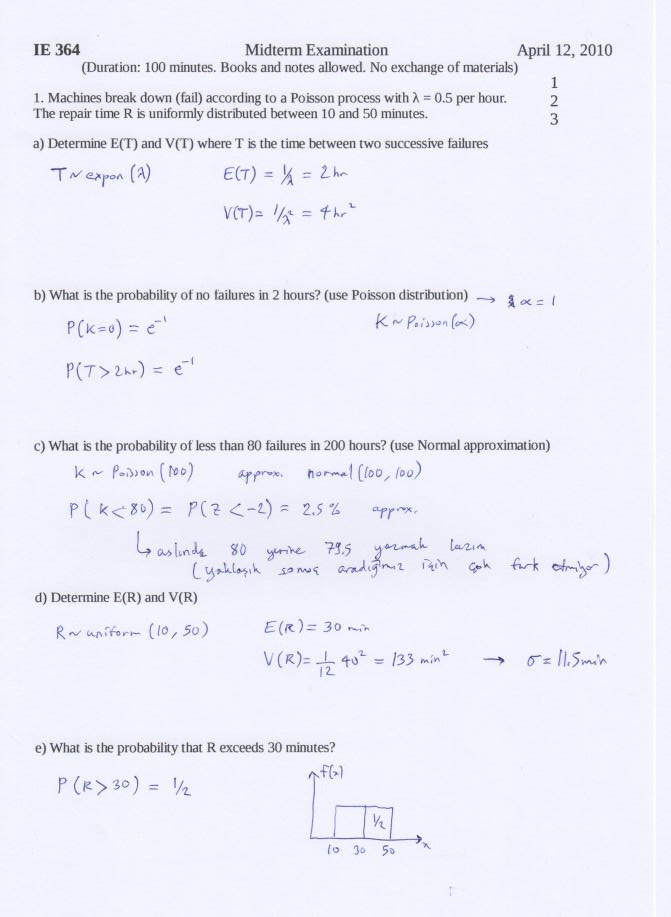 IE 364 Midterm Examination April 12, 2010
(Duration: 100 minutes. Books and notes allowed. No exchange of materials)
1
2
3
1. Machines break down (fail) according to a Poisson process with λ = 0.5 per hour.
The repair time R is uniformly distributed between 10 and 50 minutes.
a) Determine E(T) and V(T) where T is the time between two successive failures
T ~ expon (λ) E(T) = 1/λ = 2 hr
V(T) = 1/λ² = 4 hr²
b) What is the probability of no failures in 2 hours? (use Poisson distribution) → α = 1
P(K=0) = e⁻¹ K ~ Poisson (α)
P(T > 2hr) = e⁻¹
c) What is the probability of less than 80 failures in 200 hours? (use Normal approximation)
K ~ Poisson (100) approx. normal (100, 100)
P( K < 80) = P(Z < -2) = 2.5 % approx.
↳ aslında 80 yerine 79.5 yazmak lazım
(yaklaşık sonuç aradığımız için çok fark etmiyor)
d) Determine E(R) and V(R)
R ~ uniform (10, 50) E(R) = 30 min
V(R) = 1/12 40² = 133 min² → σ = 11.5 min
e) What is the probability that R exceeds 30 minutes?
P (R > 30) = 1/2
f(x)
1/2
10 30 50 x